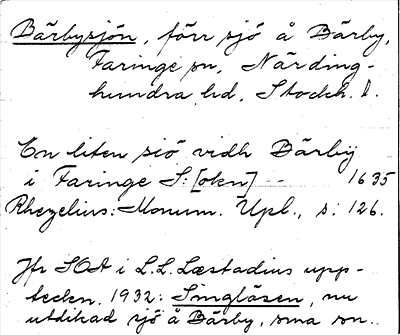 Bärbysjön, förr sjö å Bärby,
Faringe sn, Närding-
hundra hd, Stockh. l.
En liten siö vidh Bärby
i Faringe S: [okn] -- 1635
Rhezelius: Monum. Upl., s: 126.
Jfr SOA i L.L. Læstadius upp-
teckn. 1932: Singlåsen, nu
utdikad sjö å Bärby, sma sn..